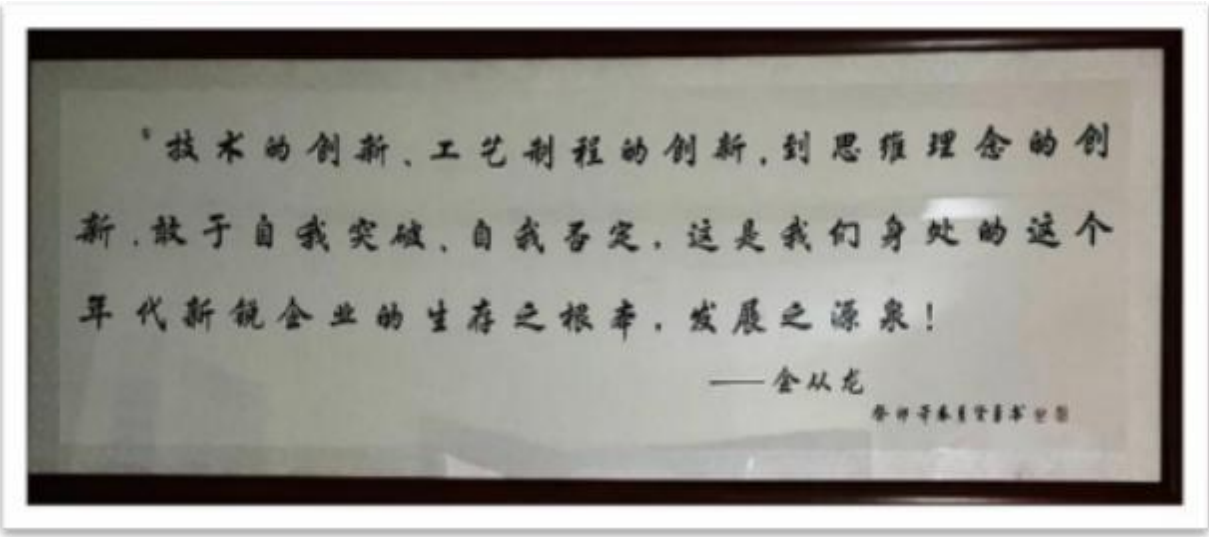 技术的创新、工艺制程的创新,到思维理念的创
新,敢于自我突破、自我否定,这是我们身处的这个
年代新锐企业的生存之根本,发展之源泉!
——金从龙